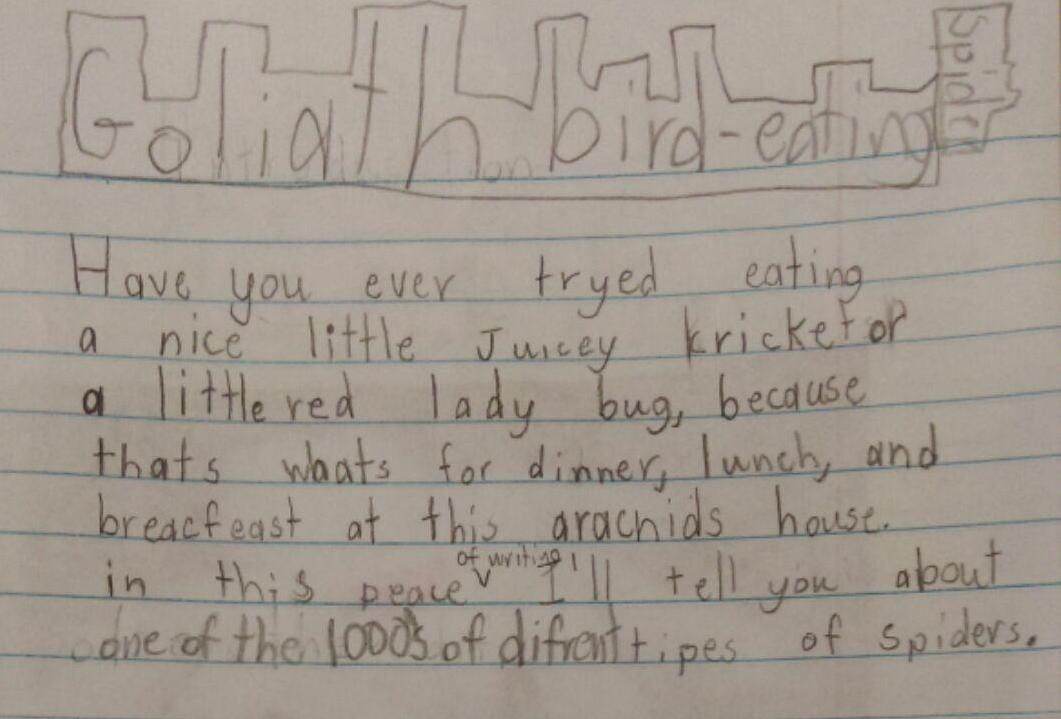 Goliath bird-eating spider
Have you ever tryed eating
a nice little Juicey kricket or
a little red lady bug, because
thats whats for dinner, lunch, and
breacfeast at this arachids house.
in this peace of writing I'll tell you about
one of the 1000's of difrent tipes of spiders.